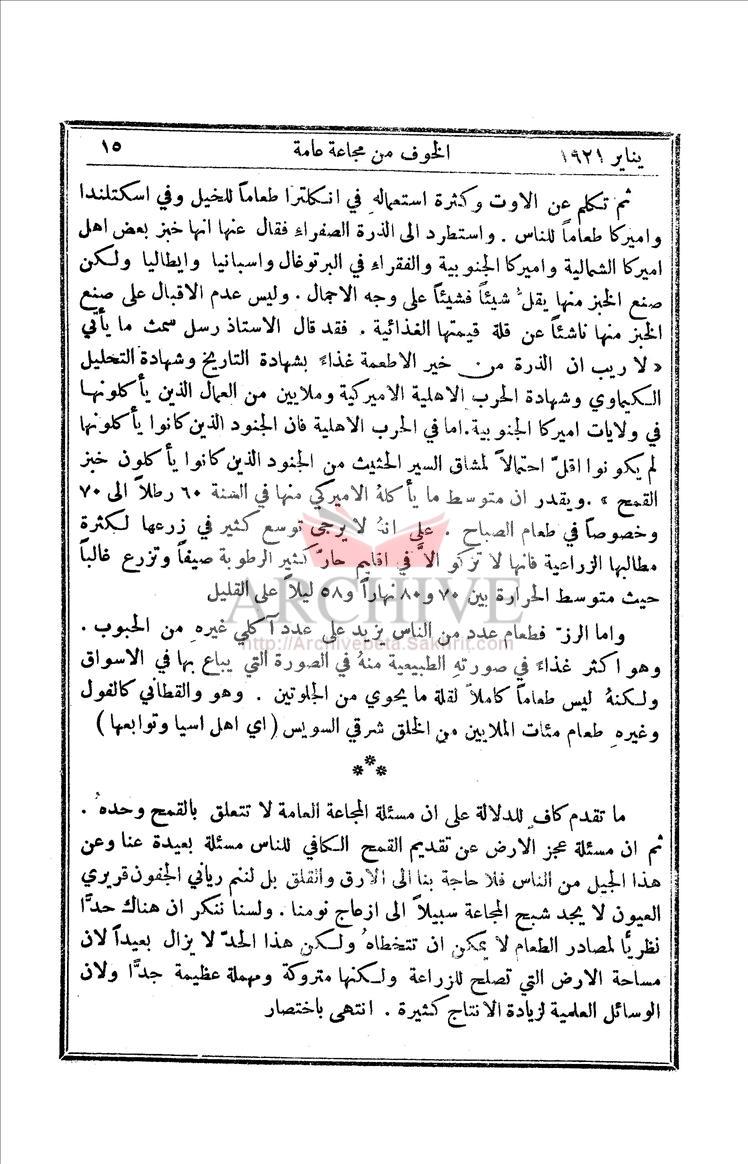 يناير ١٩٢١ الخوف من مجاعة عامة ١٥
ثم تكلم عن الاوت وكثرة استعماله في انكلترا طعاماً للخيل وفي اسكتلندا
واميركا طعاماً للناس . واستطرد الى الذرة الصفراء فقال عنها انها خبز بعض اهل
اميركا الشمالية واميركا الجنوبية والفقراء في البرتوغال واسبانيا وايطاليا ولكن
صنع الخبز منها يقلُّ شيئاً فشيئاً على وجه الاجمال . وليس عدم الاقبال على صنع
الخبز منها ناشئاً عن قلة قيمتها الغذائية . فقد قال الاستاذ رسل سمث ما يأتي
« لا ريب ان الذرة من خير الاطعمة غذاءً بشهادة التاريخ وشهادة التحليل
الكيماوي وشهادة الحرب الاهلية الاميركية وملايين من العمال الذين يأكلونها
في ولايات اميركا الجنوبية.اما في الحرب الاهلية فان الجنود الذين كانوا يأكلونها
لم يكونوا اقلّ احتمالاً لمشاق السير الحثيث من الجنود الذين كانوا يأكلون خبز
القمح » .ويقدر ان متوسط ما يأكلهُ الاميركي منها في السنة ٦٠ رطلاً الى ٧٠
وخصوصاً في طعام الصباح . على انهُ لا يرجى توسع كثير في زرعها لكثرة
مطالبها الزراعية فانها لا تزكو الاَّ في اقليم حارّ كثير الرطوبة صيفاً وتزرع غالباً
حيث متوسط الحرارة بين ٧٠ و٨٠ نهاراً و٥٨ ليلاً على القليل
واما الرزّ فطعام عدد من الناس يزيد على عدد آكلي غيره من الحبوب .
وهو اكثر غذاءً في صورته الطبيعية منهُ في الصورة التي يباع بها في الاسواق
ولكنهُ ليس طعاماً كاملاً لقلة ما يحوي من الجلوتين . وهو والقطاني كالفول
وغيره طعام مئات الملايين من الخلق شرقي السويس ( اي اهل اسيا وتوابعها )
***
ما تقدم كافٍ للدلالة على ان مسئلة المجاعة العامة لا تتعلق بالقمح وحدهُ .
ثم ان مسئلة عجز الارض عن تقديم القمح الكافي للناس مسئلة بعيدة عنا وعن
هذا الجيل من الناس فلا حاجة بنا الى الارق والقلق بل لننم رياني الجفون قريري
العيون لا يجد شبح المجاعة سبيلاً الى ازعاج نومنا . ولسنا ننكر ان هناك حدًّا
نظريًّا لمصادر الطعام لا يمكن ان تتخطاهُ ولكن هذا الحدّ لا يزال بعيداً لان
مساحة الارض التي تصلح للزراعة ولكنها متروكة ومهملة عظيمة جدًّا ولان
الوسائل العلمية لزيادة الانتاج كثيرة . انتهى باختصار
ARCHIVE
http://Archivebeta.Sakhrit.com